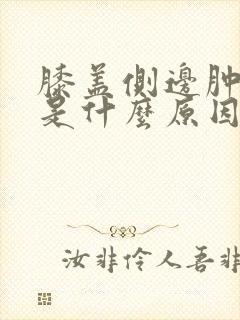 膝盖側邊肿
是什麼原因
汝非伶人吾非